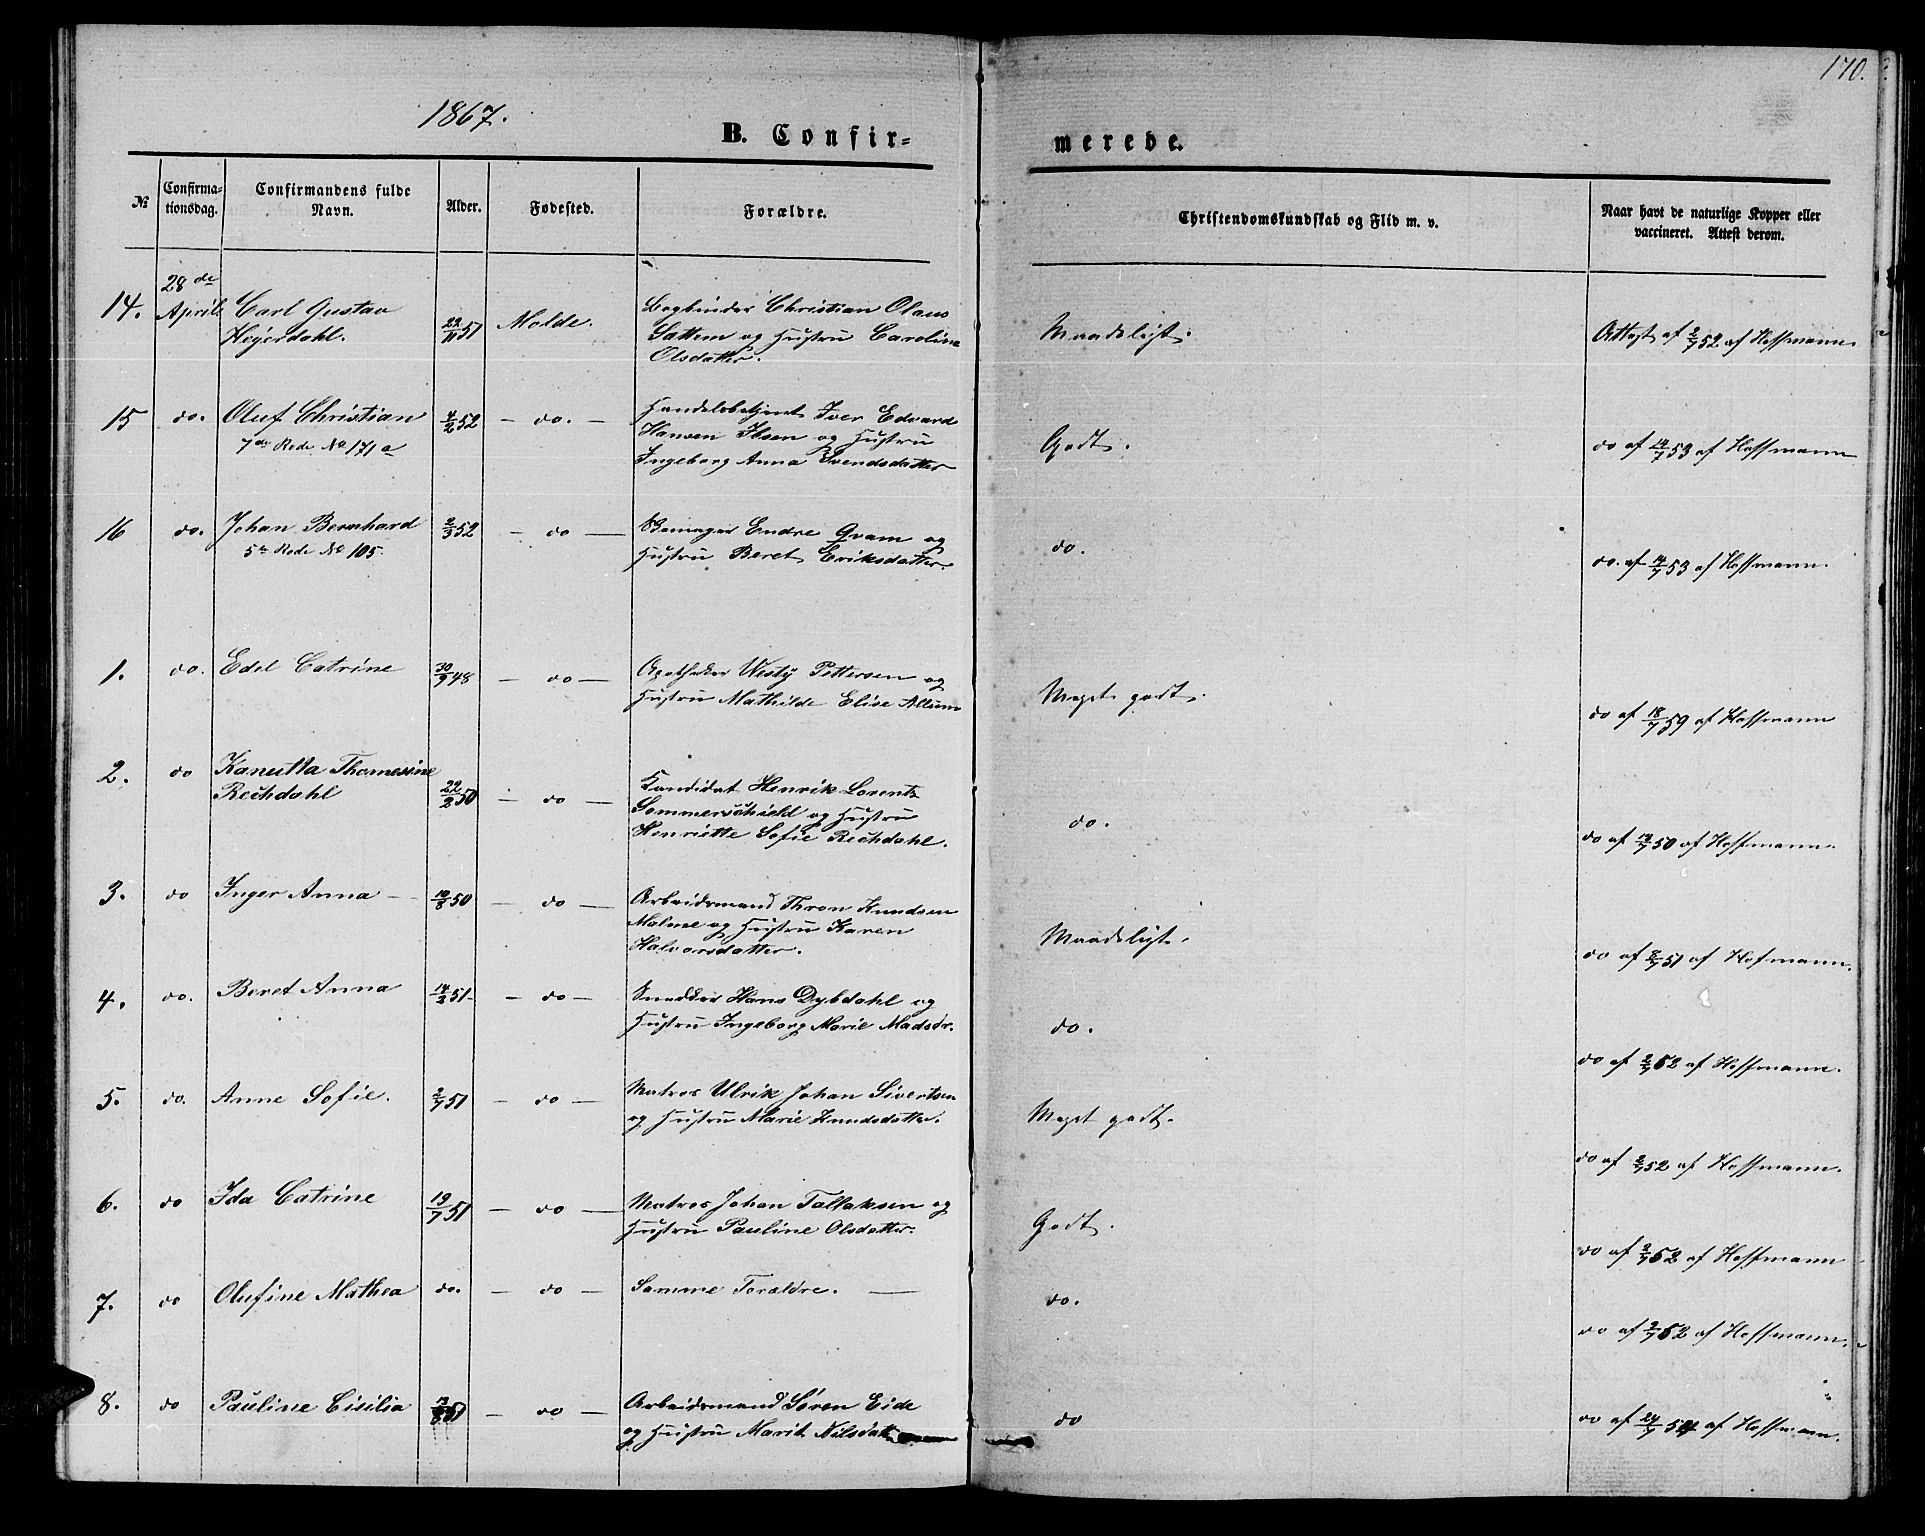 170.
1867.
B. Confir=
merede.
№
Confirma-
tionsdag.
Confirmandens fulde
Navn.
Alder.
Fødested.
Forældre.
Christendomskundskab og Flid m. v.
Naar havt de naturlige Kopper eller
vaccineret. Attest derom.
14.
28de
April
Carl Gustav
Heyerdahl.
22/11 51
Molde.
Bogbinder Christian Olaus
Sattem og Hustru Caroline
Olsdatter.
Maadeligt.
Attest af 2/7 52 af Hoffmann.
15
do.
Oluf Christian
7de Rode No 171a
4/2 52
— do. —
Handelsbetjent Iver Edvard
Hansen Ilsen og Hustru
Ingeborg Anna Svendsdatter
Godt.
do af 14/7 53 af Hoffmann
16
do.
Johan Bernhard
5te Rode No 105.
2/3 52
— do —
Skomager Endre Qvam og
Hustru Beret Eriksdatter.
do.
do. af 14/7 53 af Hoffmann.
1.
do.
Edel Catrine
30/9 48
— do —
Apotheker Westy Pettersen og
Hustru Mathilde Elise Allum
Meget godt.
do af 18/7 59 af Hoffmann
2.
do
Kanutta Thomesine
Rechdahl
22/2 50
— do —
Kandidat Henrik Lorentz
Sommerschield og Hustru
Henriette Sofie Rechdahl.
do.
do af 12/7 50 af Hoffmann.
3.
do
Inger Anna —
10/8 50
— do —
Arbeidsmand Thron Knudsen
Malme og Hustru Karen
Halvorsdatter.
Maadeligt.
do af 8/7 51 af Hofmann.
4.
do.
Beret Anna
14/2 51-
— do —
Snedker Hans Dybdahl og
Hustru Ingeborg Marie Madsdr.
do.
do af 2/7 52 af Hoffmann.
5.
do.
Anne Sofie.
2/7 51
— do —
Matros Ulrik Johan Sivertsen
og Hustru Marie Knudsdatter.
Meget godt.
do af 2/7 52 af Hoffmann.
6.
do
Ida Catrine
19/7 51
— do —
Matros Johan Tallaksen og
Hustru Pauline Olsdatter.
Godt.
do af 2/7 52 af Hoffmann
7.
do
Olufine Mathea
do.
— do —
Samme Forældre. —
do.
do af 2/7 52 af Hoffmann.
8.
do
Pauline Cisilia
51
— do —
Arbeidsmand Søren Eide
og Hustru Marit Nilsdatt
do
do af 24/7 54 af Hoffmann.